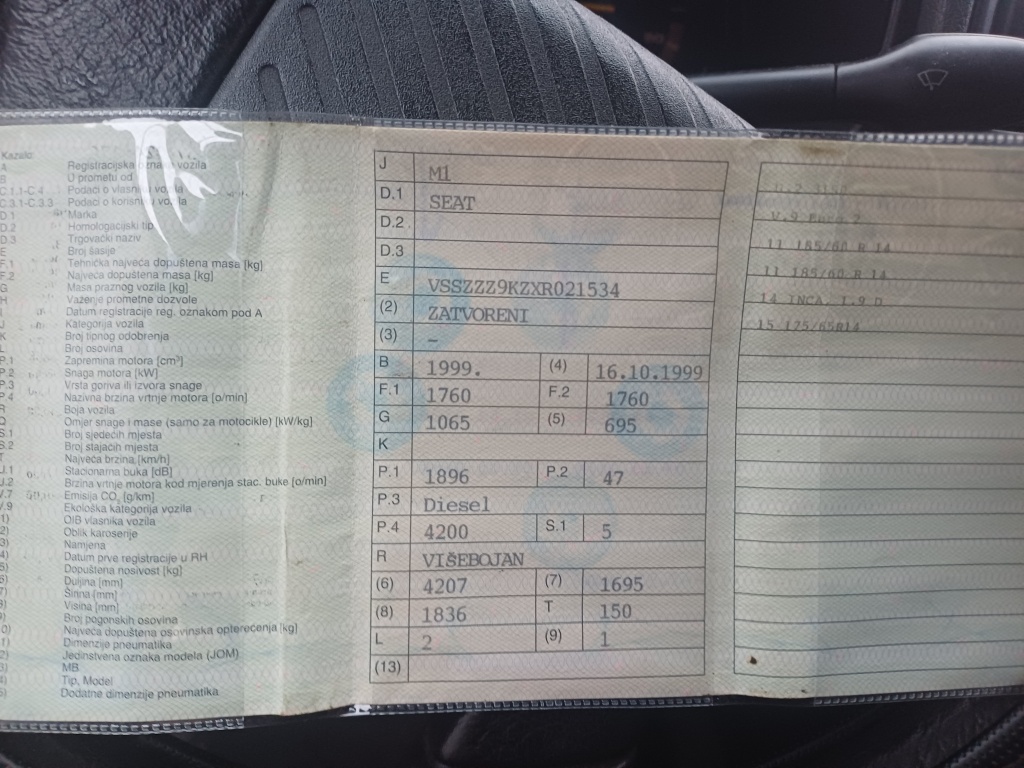 Kazalo:
A Registracijska oznaka vozila
B U prometu od
C.1.1-C.4 Podaci o vlasniku vozila
C.3.1-C.3.3 Podaci o korisniku vozila
D.1 Marka
D.2 Homologacijski tip
D.3 Trgovački naziv
E Broj šasije
F.1 Tehnička najveća dopuštena masa [kg]
F.2 Najveća dopuštena masa [kg]
G Masa praznog vozila [kg]
H Važenje prometne dozvole
I Datum registracije reg. oznakom pod A
J Kategorija vozila
K Broj tipnog odobrenja
L Broj osovina
P.1 Zapremina motora [cm³]
P.2 Snaga motora [kW]
P.3 Vrsta goriva ili izvora snage
P.4 Nazivna brzina vrtnje motora [o/min]
R Boja vozila
Q Omjer snage i mase (samo za motocikle) [kW/kg]
S.1 Broj sjedećih mjesta
S.2 Broj stajaćih mjesta
T Najveća brzina [km/h]
U.1 Stacionarna buka [dB]
U.2 Brzina vrtnje motora kod mjerenja stac. buke [o/min]
V.7 Emisija CO₂ [g/km]
V.9 Ekološka kategorija vozila
1) OIB vlasnika vozila
2) Oblik karoserije
3) Namjena
4) Datum prve registracije u RH
5) Dopuštena nosivost [kg]
6) Duljina [mm]
7) Širina [mm]
8) Visina [mm]
9) Broj pogonskih osovina
0) Najveća dopuštena osovinska opterećenja [kg]
1) Dimenzije pneumatika
2) Jedinstvena oznaka modela (JOM)
3) MB
4) Tip, Model
5) Dodatne dimenzije pneumatika
J M1
D.1 SEAT
D.2
D.3
E VSSZZZ9KZXR021534
(2) ZATVORENI
(3) –
B 1999. (4) 16.10.1999
F.1 1760 F.2 1760
G 1065 (5) 695
K
P.1 1896 P.2 47
P.3 Diesel
P.4 4200 S.1 5
R VIŠEBOJAN
(6) 4207 (7) 1695
(8) 1836 T 150
L 2 (9) 1
(13)
V.9 Euro 2
11 185/60 R 14
11 185/60 R 14
14 INCA, 1.9 D
15 175/65R14